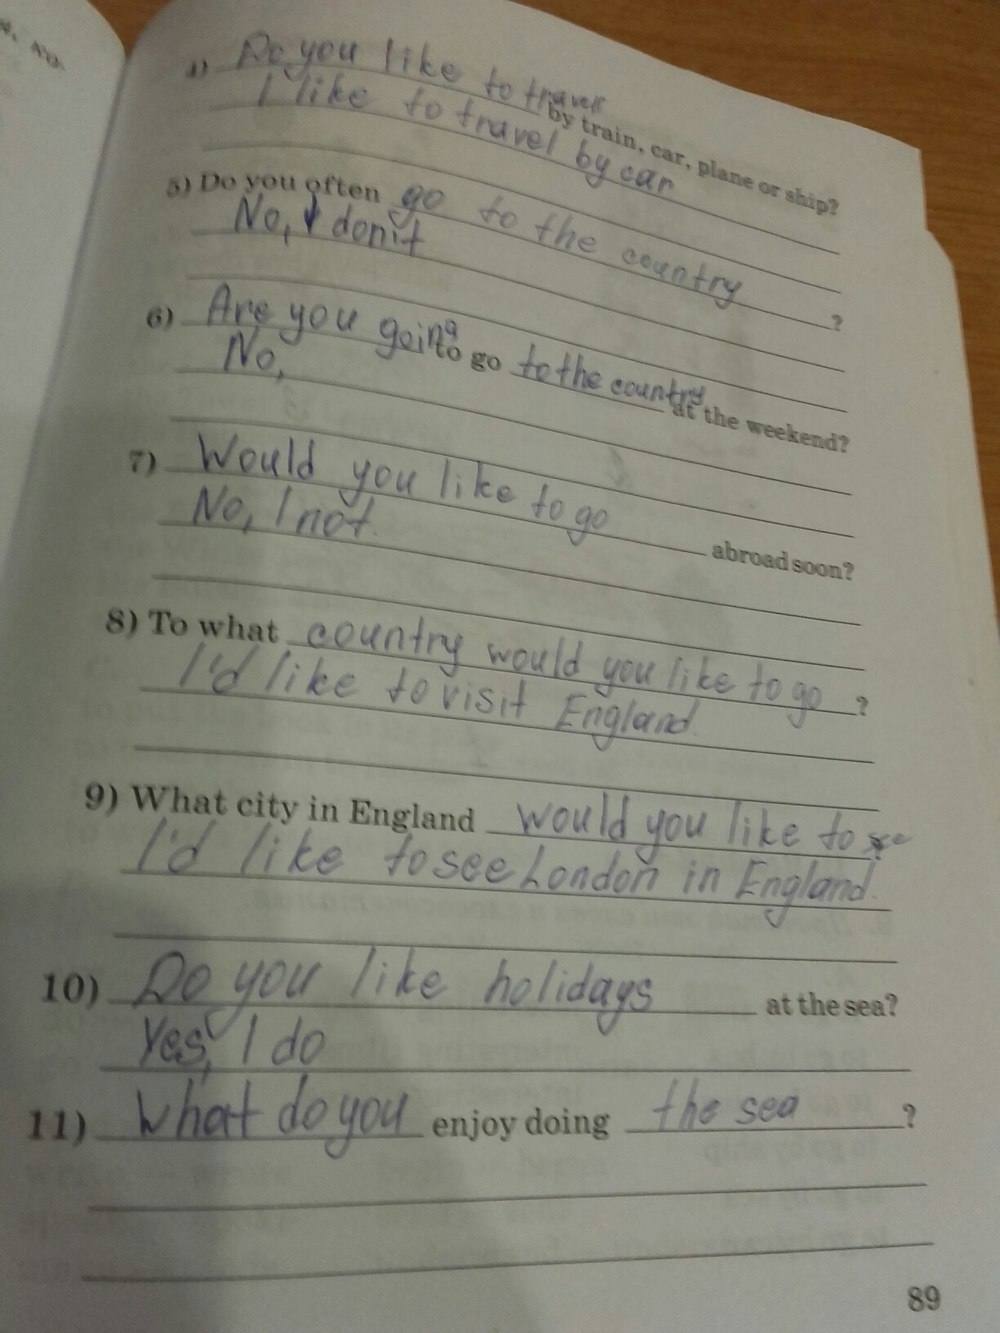 4) Do you like to travel by train, car, plane or ship?
I like to travel by car
5) Do you often go to the country ?
No, I don't
6) Are you going to go to the country at the weekend?
No,
7) Would you like to go abroad soon?
No, I not.
8) To what country would you like to go ?
I'd like to visit England.
9) What city in England would you like to see
I'd like to see London in England.
10) Do you like holidays at the sea?
Yes, I do
11) What do you enjoy doing the sea ?
89